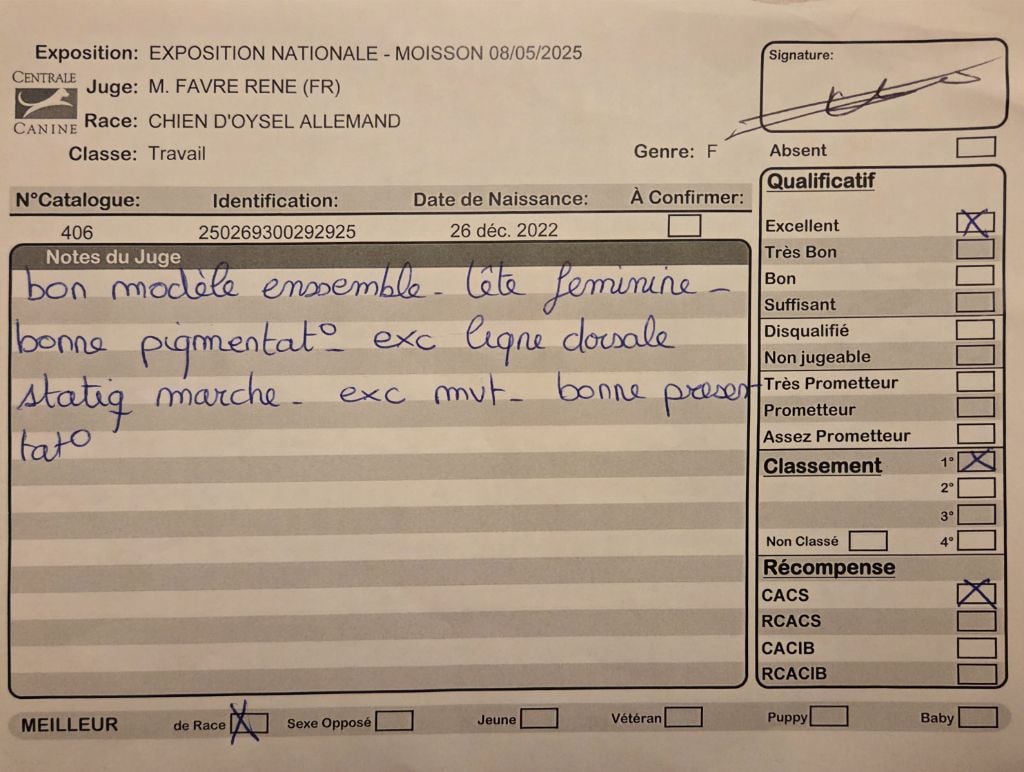 Exposition: EXPOSITION NATIONALE - MOISSON 08/05/2025
Signature:
CENTRALE
CANINE
Juge: M. FAVRE RENE (FR)
Race: CHIEN D'OYSEL ALLEMAND
Classe: Travail
Genre: F
Absent
N°Catalogue: Identification: Date de Naissance: À Confirmer:
406 250269300292925 26 déc. 2022
Notes du Juge
bon modèle enssemble - tête feminine -
bonne pigmentat° - exc ligne dorsale
statiq marche - exc mvt - bonne presen
tat°
Qualificatif
Excellent
Très Bon
Bon
Suffisant
Disqualifié
Non jugeable
Très Prometteur
Prometteur
Assez Prometteur
Classement 1°
2°
3°
Non Classé 4°
Récompense
CACS
RCACS
CACIB
RCACIB
MEILLEUR de Race Sexe Opposé Jeune Vétéran Puppy Baby